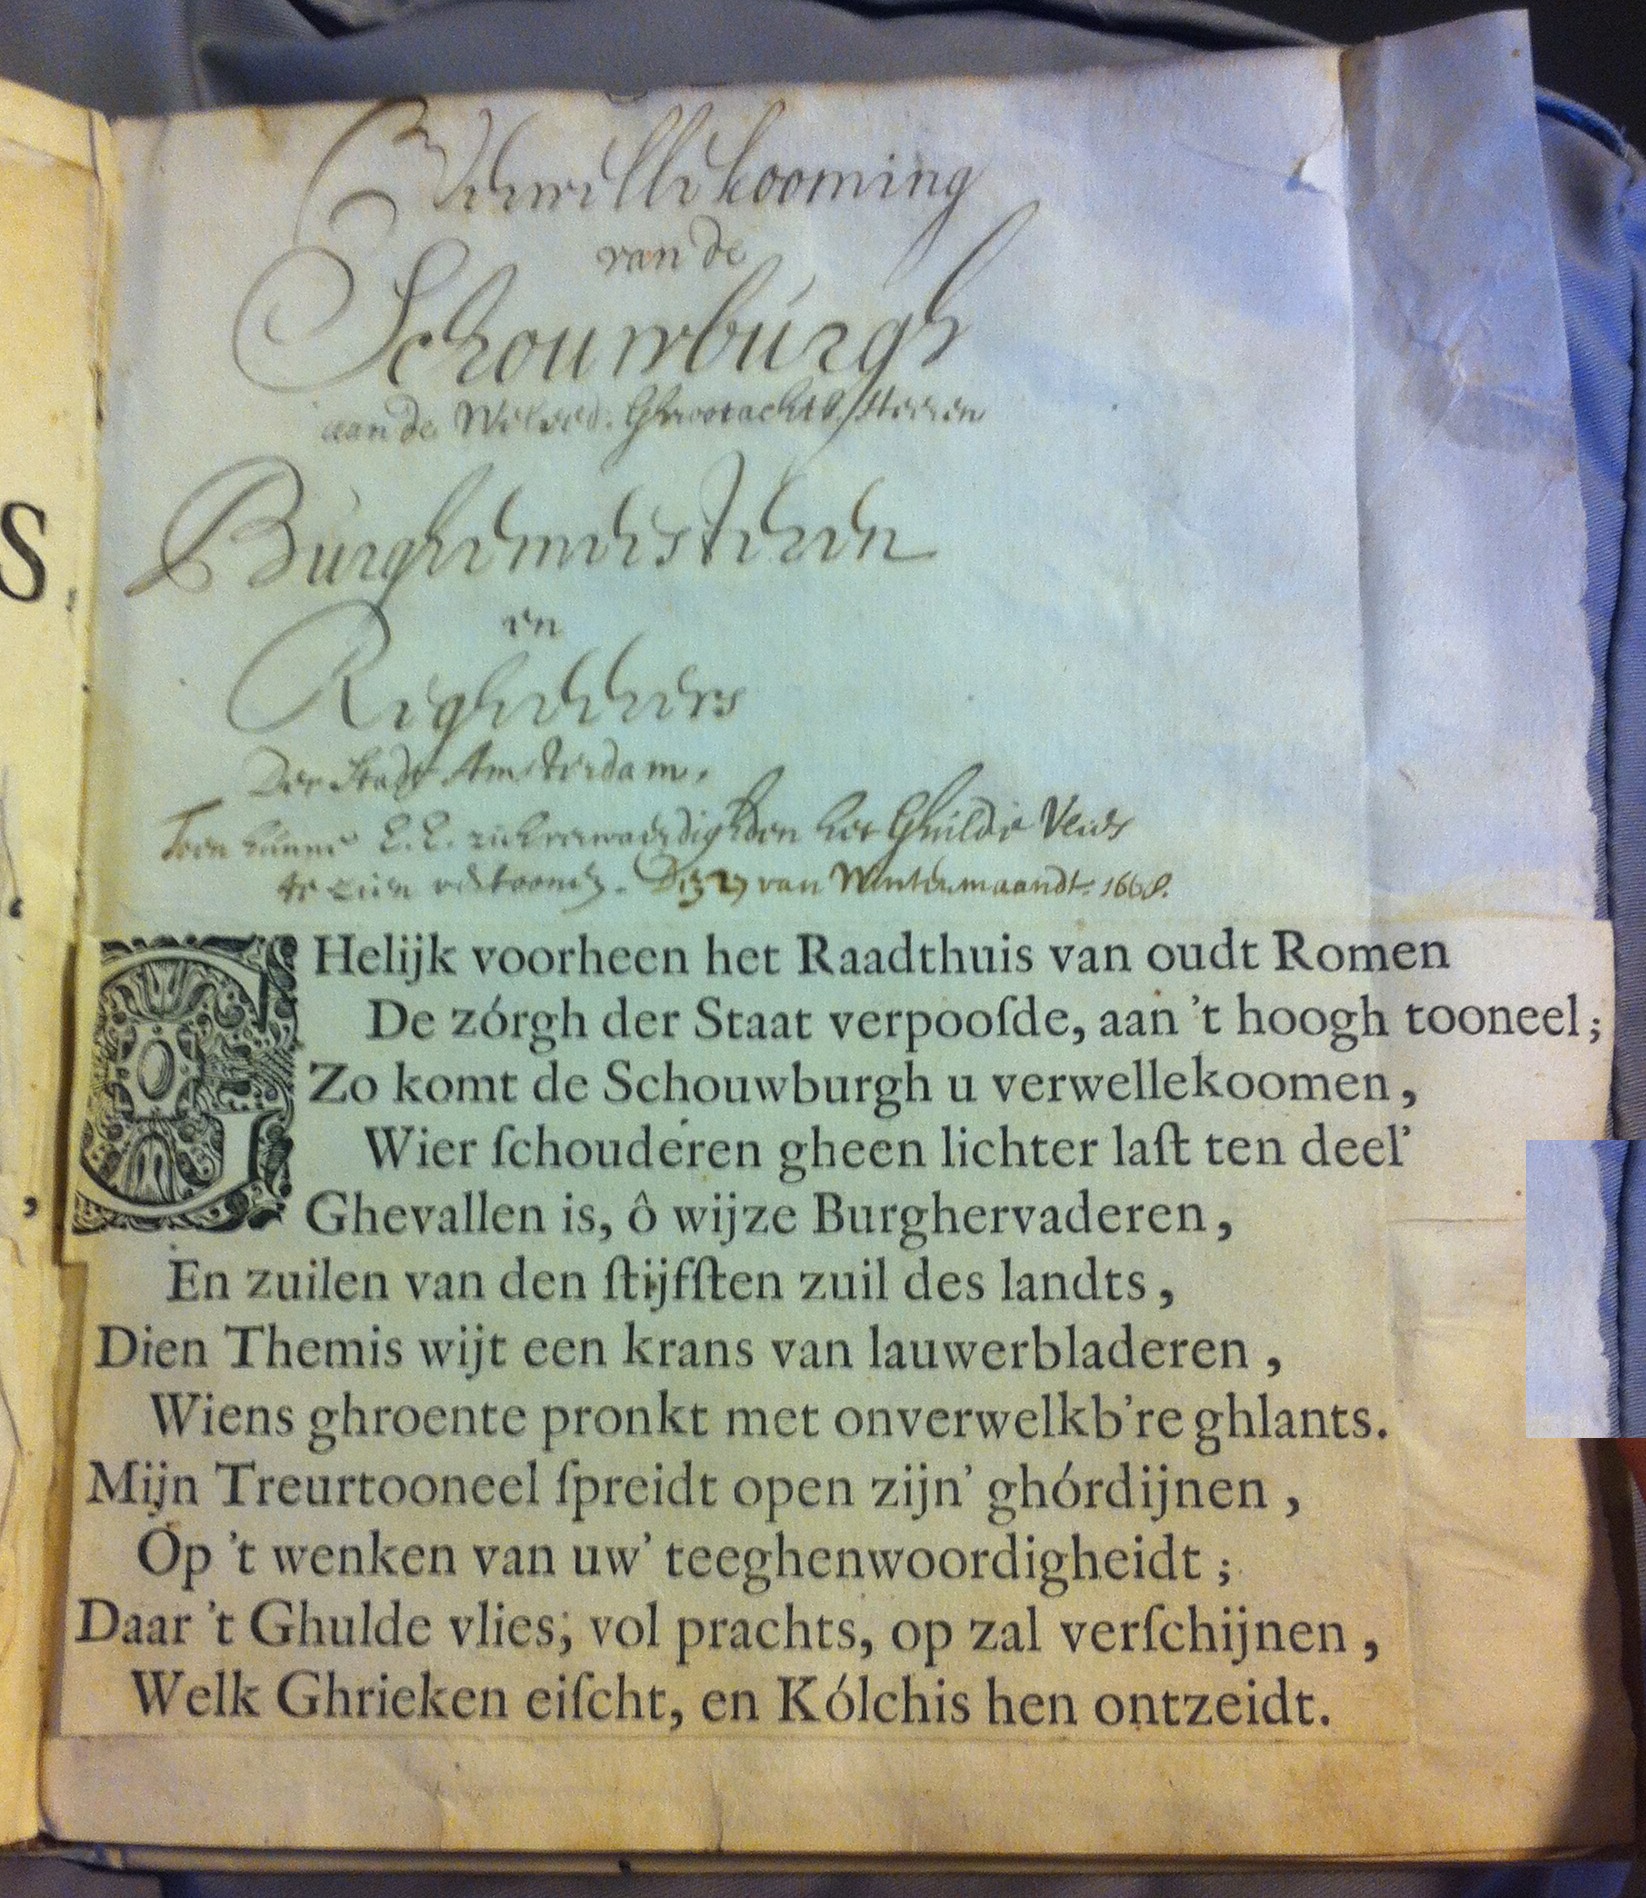 Verwillekooming
van de
Schouwburgh
aan de Wel.ed. Ghrootachtb. Heeren
Burghemeisteren
en
Regheerers
Der Stadt Amsterdam,
Toen hunne E.E. zich verwaerdighden het Ghulde Vlies
te zien vertoonen. Den 27 van Wintermaandt. 1668.
GHelijk voorheen het Raadthuis van oudt Romen
De zórgh der Staat verpooſde, aan 't hoogh tooneel;
Zo komt de Schouwburgh u verwellekoomen,
Wier ſchouderen gheen lichter laſt ten deel'
Ghevallen is, ô wijze Burghervaderen,
En zuilen van den ſtijfſten zuil des landts,
Dien Themis wijt een krans van lauwerbladeren,
Wiens ghroente pronkt met onverwelkb're ghlants.
Mijn Treurtooneel ſpreidt open zijn' ghórdijnen,
Óp 't wenken van uw' teeghenwoordigheidt;
Daar 't Ghulde vlies; vol prachts, op zal verſchijnen,
Welk Ghrieken eiſcht, en Kólchis hen ontzeidt.